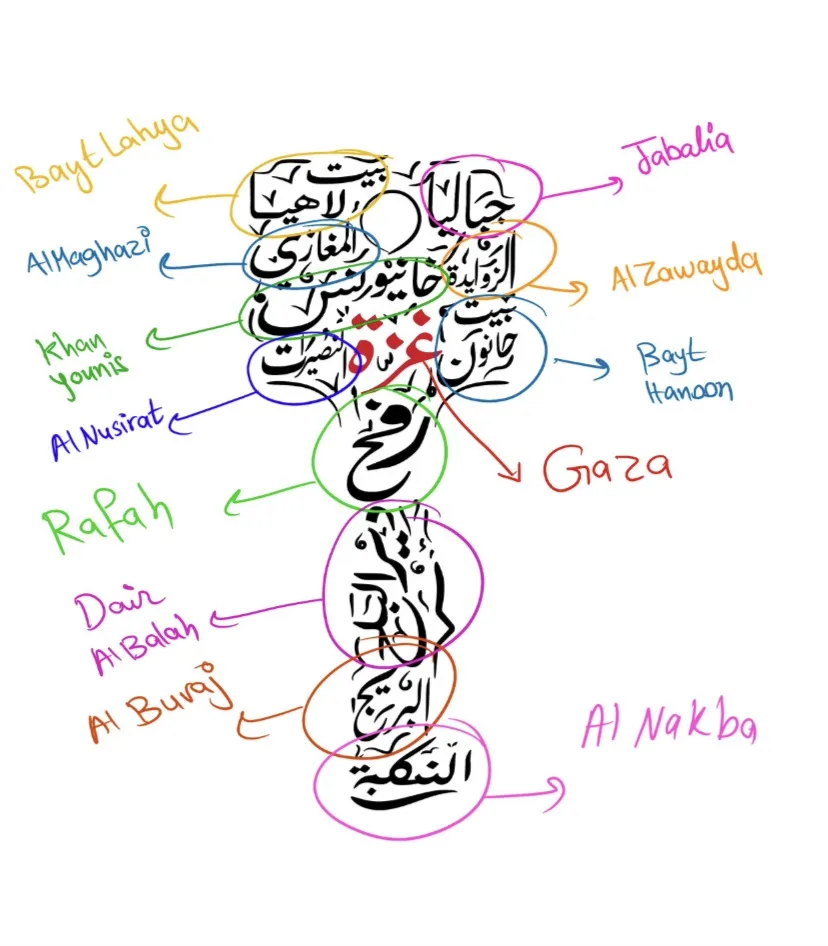 Bayt Lahya
Jabalia
بيت
لاهيا
جباليا
AlMaghazi
المغازي
الزوايدة
Al Zawayda
خانيونس
Khan
younis
غزة
بيت
حانون
Bayt
Hanoon
النصيرات
Al Nusirat
رفح
Gaza
Rafah
دير البلح
Dair
Al Balah
البريج
Al Buraj
النكبة
Al Nakba